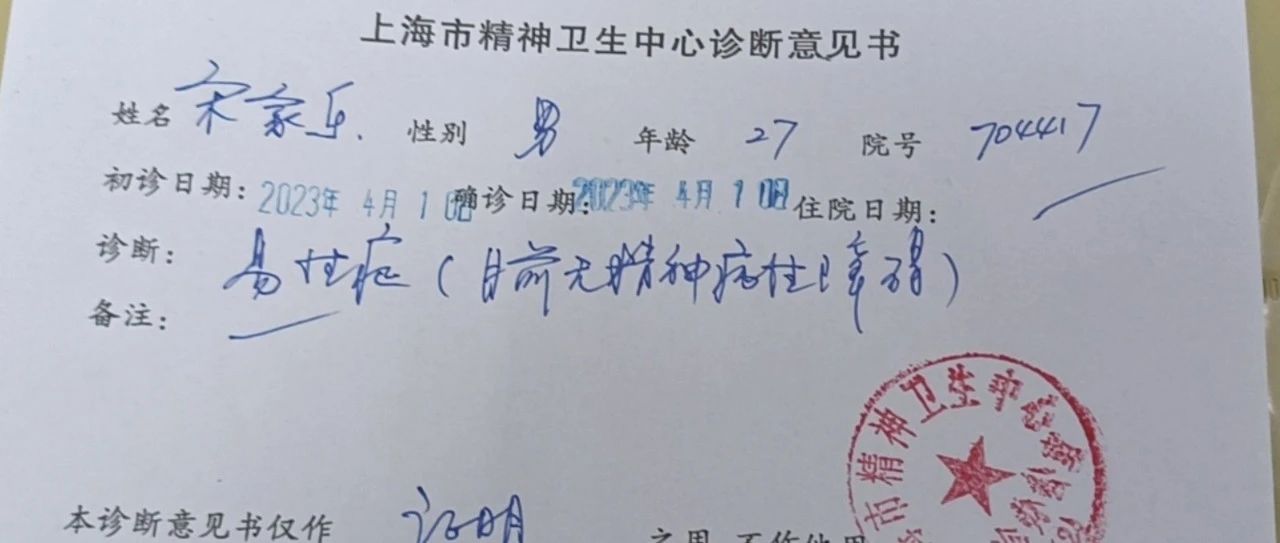 上海市精神卫生中心诊断意见书
姓名 宋家乐. 性别 男 年龄 27 院号 704417
初诊日期: 2023年 4月 10日 确诊日期: 2023年 4月 10日 住院日期:
诊断: 易性症(目前无精神病性障碍)
备注:
市精神卫生中心
本诊断意见书仅作 证明 之用 不作他用